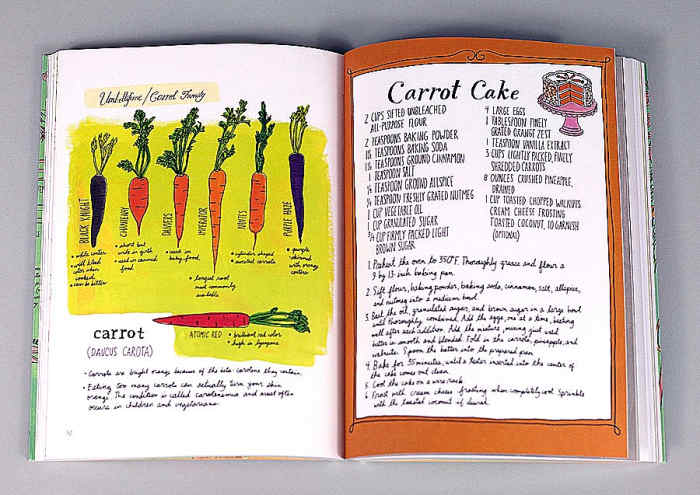 Umbelliferae / Carrot Family
BLACK KNIGHT
CHANTENAY
DANVERS
IMPERATOR
NANTES
PURPLE HAZE
• white center
color when
cooked
• can be bitter
• short but
wide in girth
• used in canned
food
• used in
baby food
• longest root
most commonly
available
• cylinder shaped
• sweetest carrots
• purple
skinned
with orange
centers
ATOMIC RED
• brilliant red color
• high in lycopene
carrot
(DAUCUS CAROTA)
• Carrots are bright orange because of the beta-carotene they contain.
• Eating too many carrots can actually turn your skin
orange. The condition is called carotenemia and most often
occurs in children and vegetarians.
Carrot Cake
2 CUPS SIFTED UNBLEACHED
ALL-PURPOSE FLOUR
2 TEASPOONS BAKING POWDER
1½ TEASPOONS BAKING SODA
1½ TEASPOONS GROUND CINNAMON
1 TEASPOON SALT
TEASPOON GROUND ALLSPICE
TEASPOON FRESHLY GRATED NUTMEG
1 CUP VEGETABLE OIL
1 CUP GRANULATED SUGAR
3/4 CUP FIRMLY PACKED LIGHT
BROWN SUGAR
4 LARGE EGGS
1 TABLESPOON FINELY
GRATED ORANGE ZEST
1 TEASPOON VANILLA EXTRACT
3 CUPS LIGHTLY PACKED, FINELY
SHREDDED CARROTS
8 OUNCES CRUSHED PINEAPPLE,
DRAINED
1 CUP TOASTED CHOPPED WALNUTS
CREAM CHEESE FROSTING
TOASTED COCONUT, TO GARNISH
(OPTIONAL)
1. Preheat the oven to 350°F. Thoroughly grease and flour a
9 by 13 inch baking pan.
2. Sift flour, baking powder, baking soda, cinnamon, salt, allspice,
and nutmeg into a medium bowl.
3. Beat the oil, granulated sugar, and brown sugar in a large bowl
until thoroughly combined. Add the eggs, one at a time, beating
well after each addition. Add the flour mixture, mixing just until
batter is smooth and blended. Fold in the carrots, pineapple, and
walnuts. Spoon the batter into the prepared pan.
4. Bake for 35 minutes, until a tester inserted into the center of
the cake comes out clean.
5. Cool the cake on a wire rack.
6. Frost with cream cheese frosting when completely cool. Sprinkle
with the toasted coconut if desired.